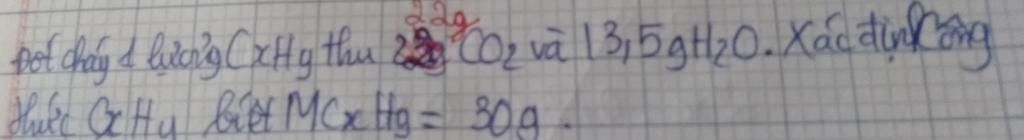 22g
Đốt cháy 1 lượng CxHy thu CO2 và 13,5gH2O. Xác định công
thức CxHy biết MCxHy = 30g.